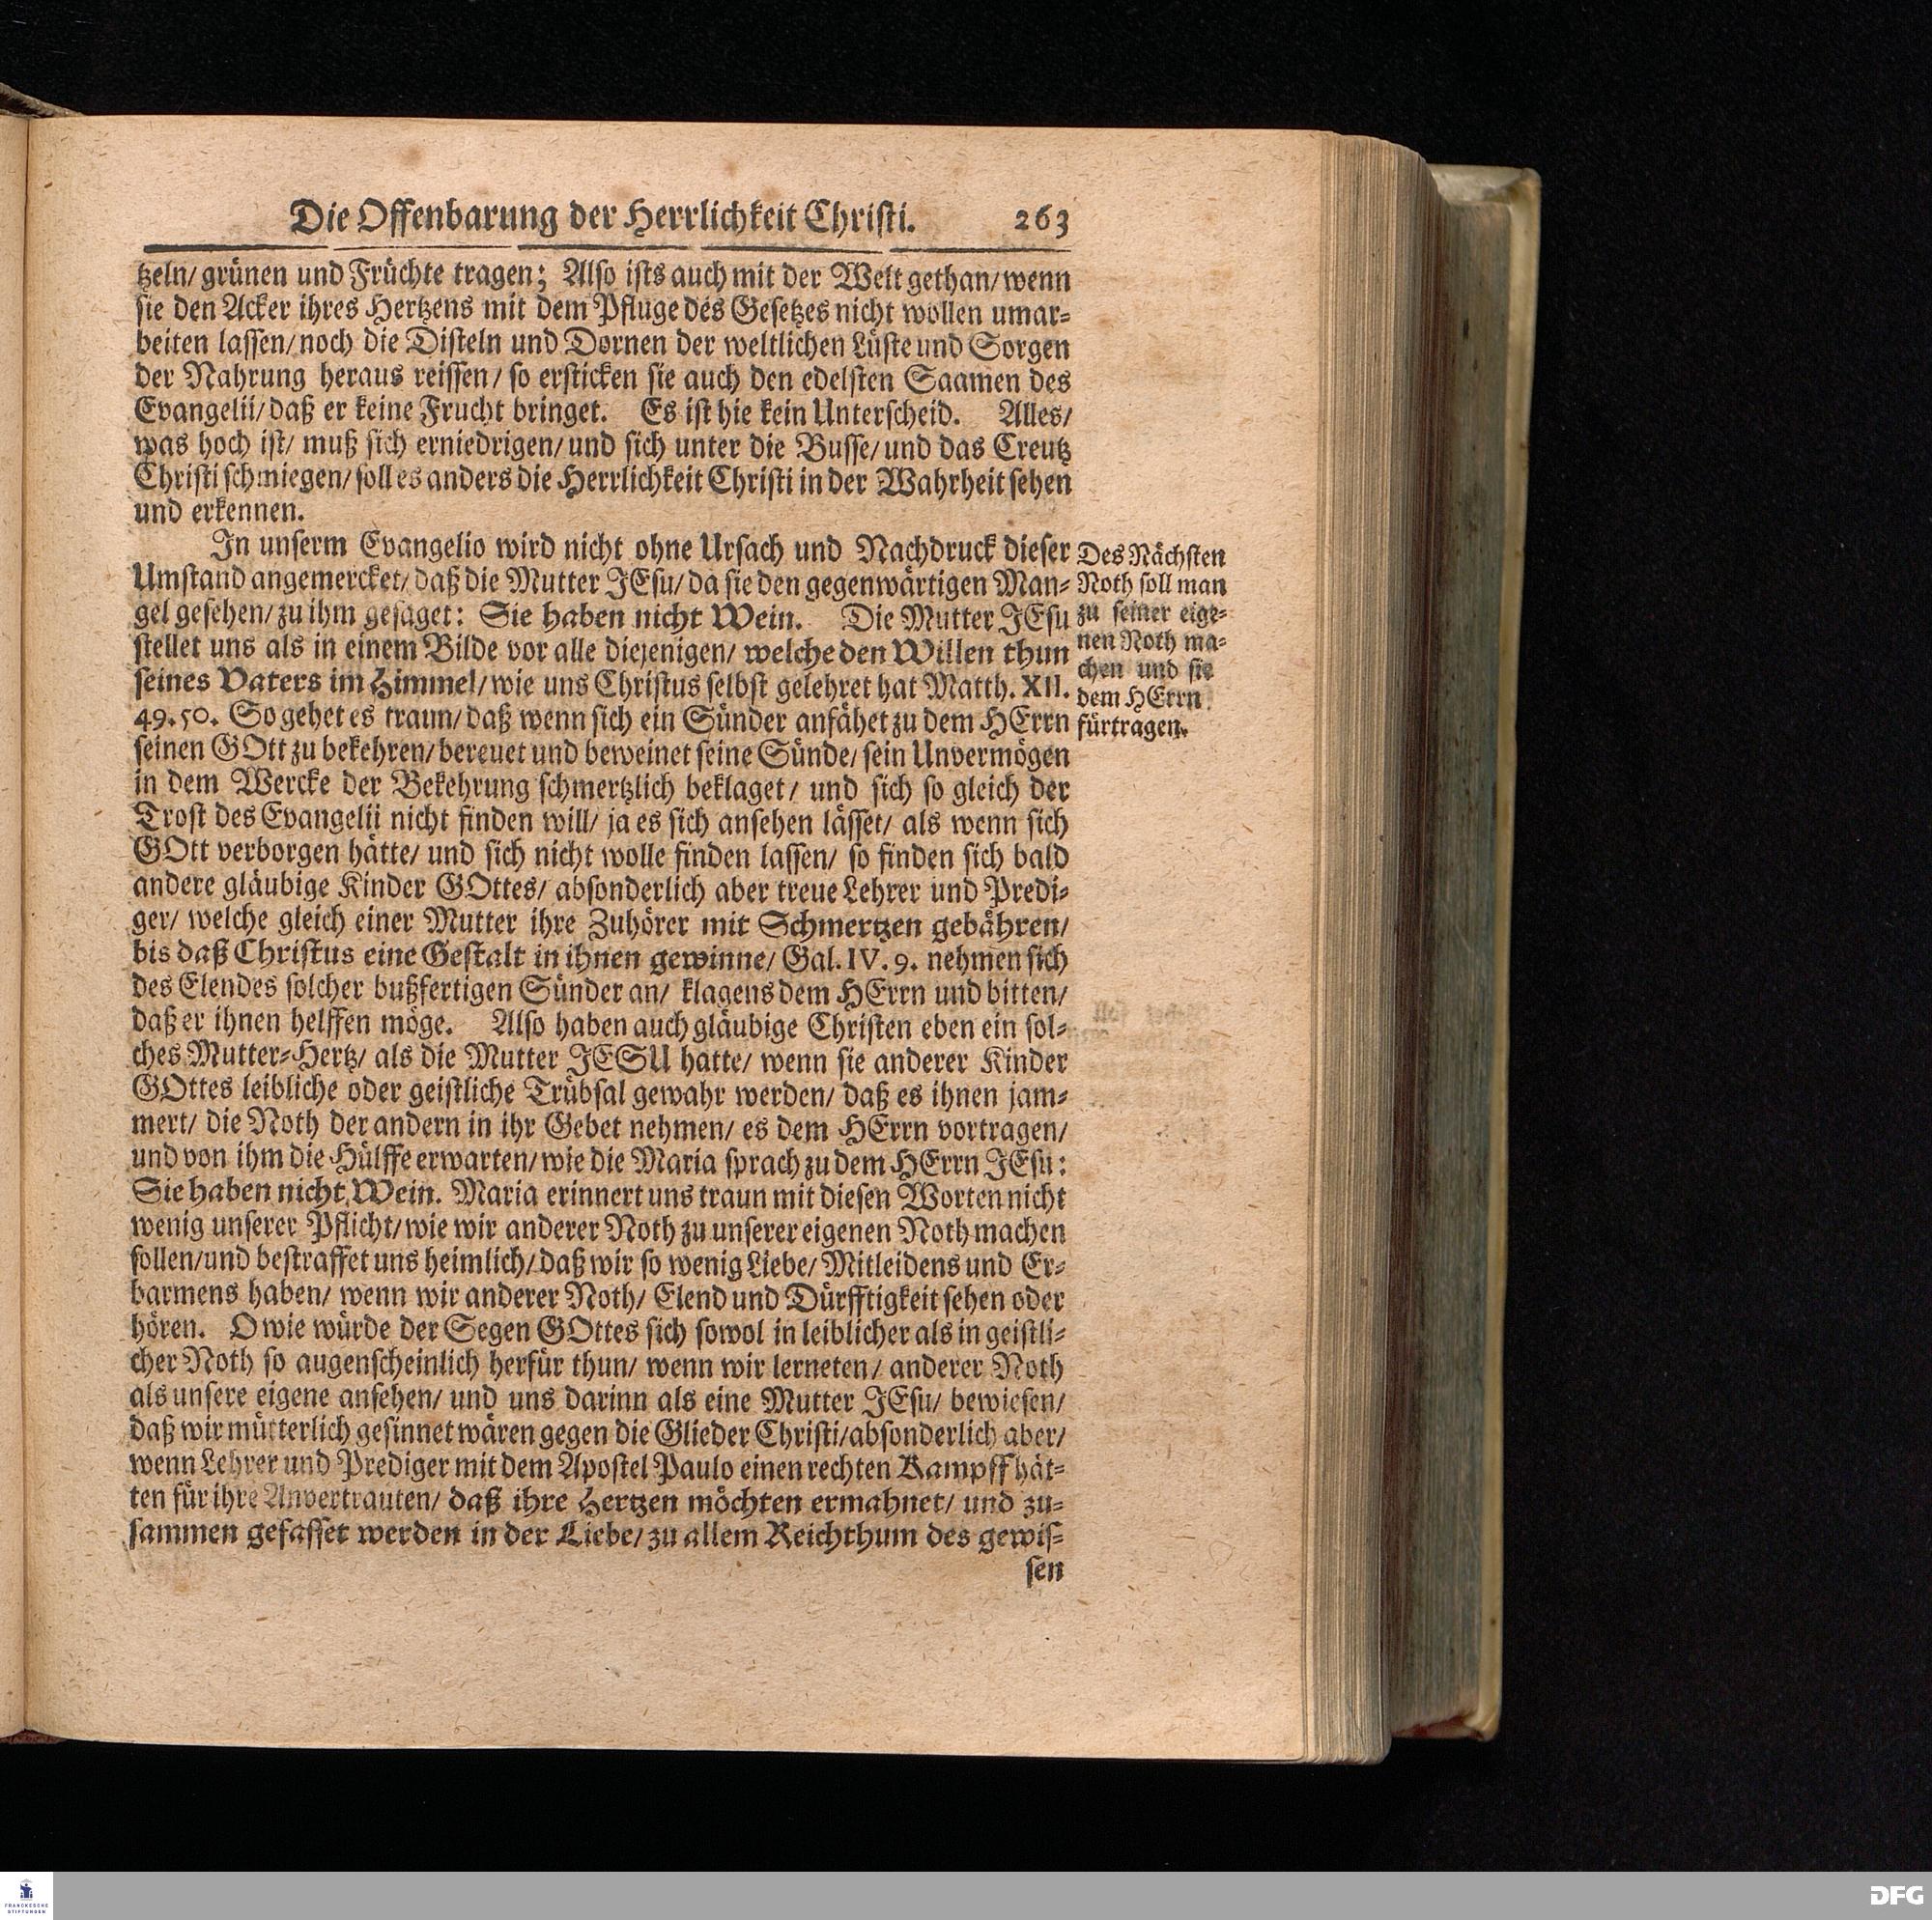 Die Offenbarung der Herrlichkeit Christi. 263
tzeln/ grünen und Früchte tragen; Also ists auch mit der Welt gethan/ wenn
sie den Acker ihres Hertzens mit dem Pfluge des Gesetzes nicht wollen umar-
beiten lassen/ noch die Disteln und Dornen der weltlichen Lüste und Sorgen
der Nahrung heraus reissen/ so ersticken sie auch den edelsten Saamen des
Evangelii/ daß er keine Frucht bringet. Es ist hie kein Unterscheid. Alles/
was hoch ist/ muß sich erniedrigen/ und sich unter die Busse/ und das Creutz
Christi schmiegen/ soll es anders die Herrlichkeit Christi in der Wahrheit sehen
und erkennen.
In unserm Evangelio wird nicht ohne Ursach und Nachdruck dieser
Umstand angemercket/ daß die Mutter JEsu/ da sie den gegenwärtigen Man-
gel gesehen/ zu ihm gesaget: Sie haben nicht Wein. Die Mutter JEsu
stellet uns als in einem Bilde vor alle diejenigen/ welche den Willen thun
seines Vaters im Himmel/ wie uns Christus selbst gelehret hat Matth. XII.
49. 50. So gehet es traun/ daß wenn sich ein Sünder anfähet zu dem HErrn
seinen GOtt zu bekehren/ bereuet und beweinet seine Sünde/ sein Unvermögen
in dem Wercke der Bekehrung schmertzlich beklaget/ und sich so gleich der
Trost des Evangelii nicht finden will/ ja es sich ansehen lässet/ als wenn sich
GOtt verborgen hätte/ und sich nicht wolle finden lassen/ so finden sich bald
andere gläubige Kinder GOttes/ absonderlich aber treue Lehrer und Predi-
ger/ welche gleich einer Mutter ihre Zuhörer mit Schmertzen gebähren/
bis daß Christus eine Gestalt in ihnen gewinne/ Gal. IV. 9. nehmen sich
des Elendes solcher bußfertigen Sünder an/ klagens dem HErrn und bitten/
daß er ihnen helffen möge. Also haben auch gläubige Christen eben ein sol-
ches Mutter-Hertz/ als die Mutter JESU hatte/ wenn sie anderer Kinder
GOttes leibliche oder geistliche Trübsal gewahr werden/ daß es ihnen jam-
mert/ die Noth der andern in ihr Gebet nehmen/ es dem HErrn vortragen/
und von ihm die Hülffe erwarten/ wie die Maria sprach zu dem HErrn JEsu:
Sie haben nicht Wein. Maria erinnert uns traun mit diesen Worten nicht
wenig unserer Pflicht/ wie wir anderer Noth zu unserer eigenen Noth machen
sollen/ und bestraffet uns heimlich/ daß wir so wenig Liebe/ Mitleidens und Er-
barmens haben/ wenn wir anderer Noth/ Elend und Dürfftigkeit sehen oder
hören. O wie würde der Segen GOttes sich sowol in leiblicher als in geistli-
cher Noth so augenscheinlich herfür thun/ wenn wir lerneten/ anderer Noth
als unsere eigene ansehen/ und uns darinn als eine Mutter JEsu/ bewiesen/
daß wir mütterlich gesinnet wären gegen die Glieder Christi/ absonderlich aber/
wenn Lehrer und Prediger mit dem Apostel Paulo einen rechten Kampff hät-
ten für ihre Anvertrauten/ daß ihre Hertzen möchten ermahnet/ und zu-
sammen gefasset werden in der Liebe/ zu allem Reichthum des gewis-
sen
Des Nächsten
Noth soll man
zu seiner eige-
nen Noth ma-
chen und sie
dem HErrn
fürtragen.
FRANCKESCHE
STIFTUNGEN
DFG